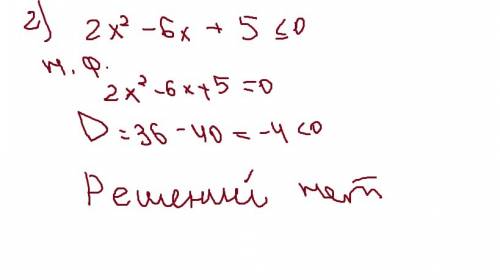 2) 2x² - 6x + 5 ≤ 0
м. ф.
2x² - 6x + 5 = 0
D = 36 - 40 = -4 < 0
Решений нет